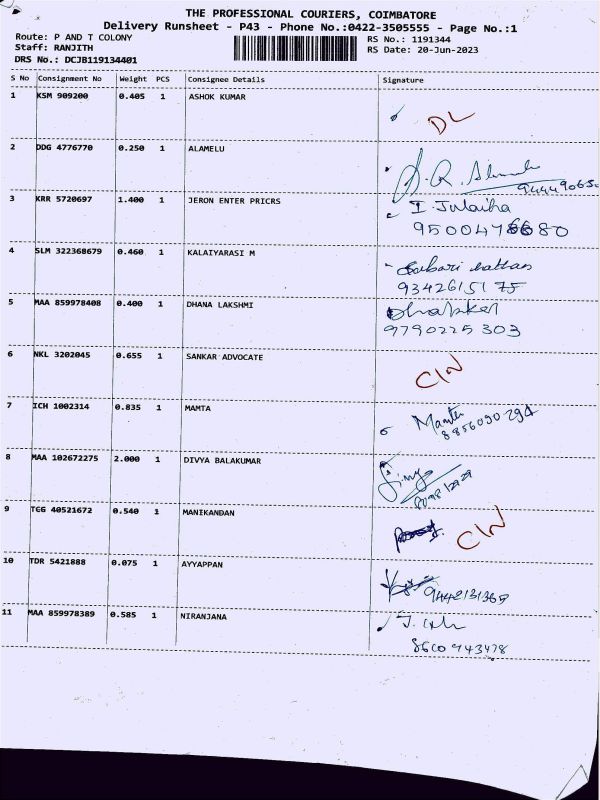 THE PROFESSIONAL COURIERS, COIMBATORE
Delivery Runsheet - P43 - Phone No.:0422-3505555 - Page No.:1
Route: P AND T COLONY RS No.: 1191344
Staff: RANJITH RS Date: 20-Jun-2023
DRS No.: DCJB119134401
S No Consignment No Weight PCS Consignee Details Signature
1 KSM 909200 0.405 1 ASHOK KUMAR
DL
2 DDG 4776770 0.250 1 ALAMELU
3 KRR 5720697 1.400 1 JERON ENTER PRICRS
I. Julaiha
4 SLM 322368679 0.460 1 KALAIYARASI M
9342615175
5 MAA 859978408 0.400 1 DHANA LAKSHMI
9790225303
6 NKL 3202045 0.655 1 SANKAR ADVOCATE
CIN
7 ICH 1002314 0.835 1 MAMTA
Mamta
8856090294
8 MAA 102672275 2.000 1 DIVYA BALAKUMAR
9 TGG 40521672 0.540 1 MANIKANDAN
CIN
10 TDR 5421888 0.075 1 AYYAPPAN
11 MAA 859978389 0.585 1 NIRANJANA
8610943478